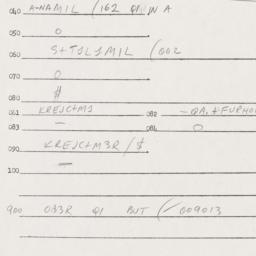 040 A-NAMIL (162
050 0
060 S+TJL1MIL (002
070 0
080 #
081 KREJC+M1 082
083 — 084 0
090 KREJC+M3R / $
100 —
900 OB3R Q1 BUT (-009013